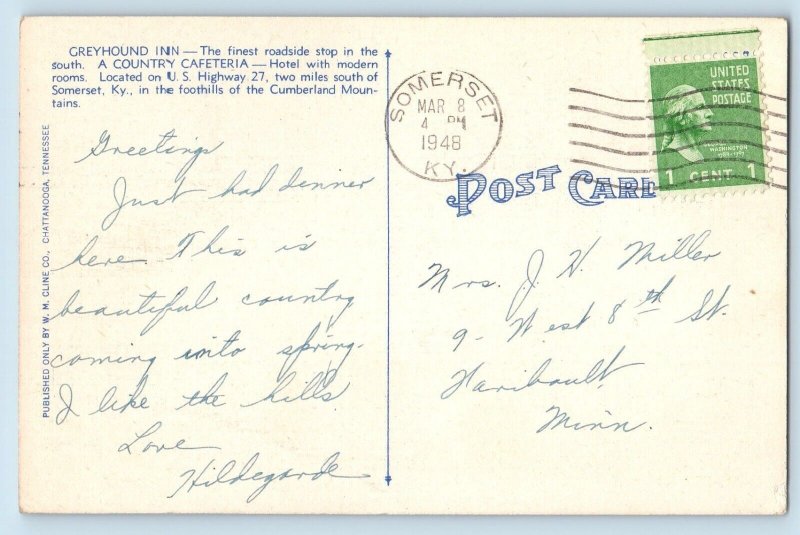 GREYHOUND INN — The finest roadside stop in the
south. A COUNTRY CAFETERIA — Hotel with modern
rooms. Located on U. S. Highway 27, two miles south of
Somerset, Ky., in the foothills of the Cumberland Moun-
tains.
PUBLISHED ONLY BY W. M. CLINE CO., CHATTANOOGA, TENNESSEE
Greetings
Just had dinner
here. This is
beautiful country
coming into spring.
I like the hills.
Love
Hildegarde
SOMERSET
MAR 8
4 PM
1948
KY.
UNITED
STATES
POSTAGE
WASHINGTON
1 CENT 1
POST CARD
Mrs. J. H. Miller
9 - West 8th St.
Faribault,
Minn.